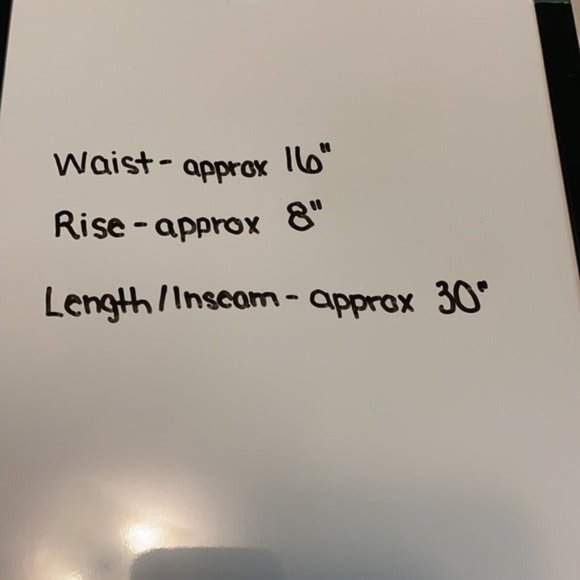 Waist- approx 16"
Rise-approx 8"
Length/Inseam- approx 30"